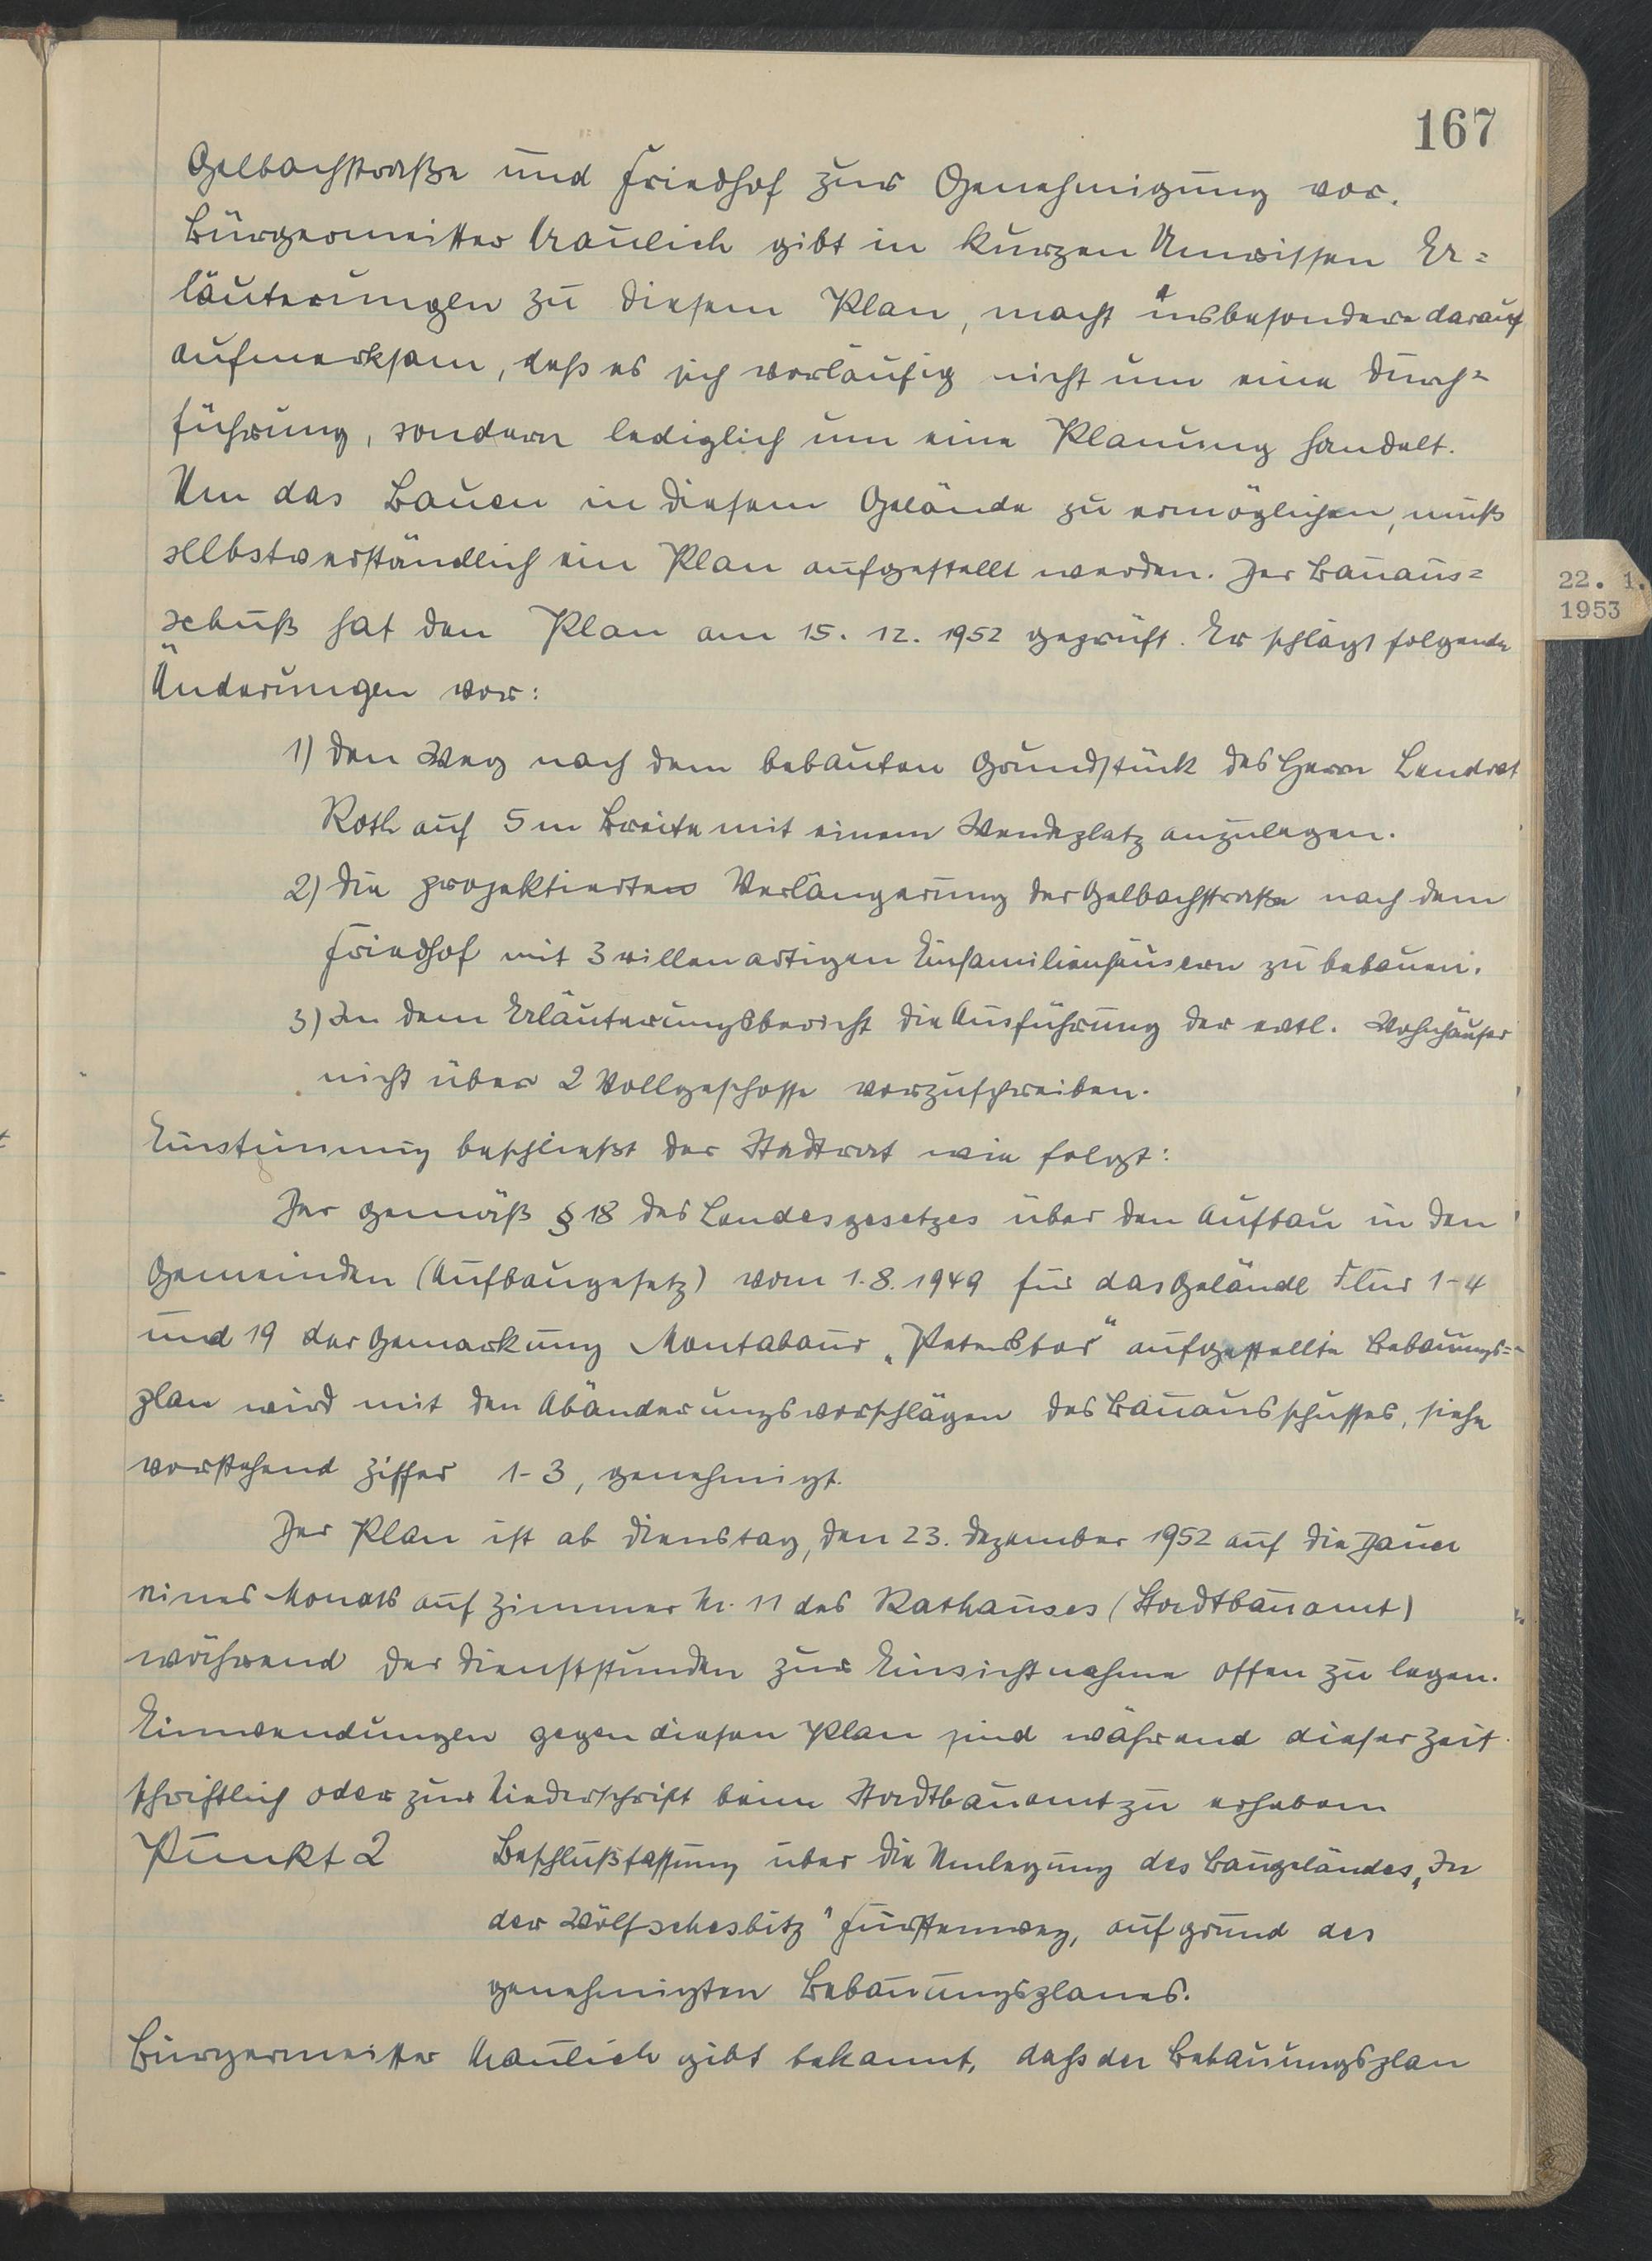 167
Gelbachstraße und Friedhof zur Genehmigung vor.
Bürgermeister Kraulich gibt in kurzen Umrissen Er=
läuterungen zu diesem Plan, macht insbesondere darauf
aufmerksam, daß es sich vorläufig nicht um eine Durch=
führung, sondern lediglich um eine Planung handelt.
Um das Bauen in diesem Gelände zu ermöglichen, muß
selbstverständlich ein Plan aufgestellt werden. Der Bauaus=
schuß hat den Plan am 15. 12. 1952 geprüft. Er schlägt folgende
Änderungen vor:
1) Den Weg nach dem bebauten Grundstück des Herrn Landrat
Roth auf 5 m Breite mit einem Wendeplatz anzulegen.
2) Die projektierten Verlängerung der Gelbachstraße nach dem
Friedhof mit 3 villenartigen Einfamilienhäusern zu bebauen.
3) In dem Erläuterungsbericht die Ausführung der evtl. Wohnhäuser
nicht über 2 Vollgeschosse vorzuschreiben.
Einstimmig beschließt der Stadtrat wie folgt:
Der gemäß § 18 des Landesgesetzes über den Aufbau in den
Gemeinden (Aufbaugesetz) vom 1.8.1949 für das Gelände Flur 1-4
und 19 der Gemarkung Montabaur „Peterstor" aufgestellte Bebauungs=
plan wird mit den Abänderungsvorschlägen des Bauausschusses, siehe
vorstehend Ziffer 1-3, genehmigt.
Der Plan ist ab Dienstag, den 23. Dezember 1952 auf die Dauer
eines Monats auf Zimmer Nr. 11 des Rathauses (Stadtbauamt)
während der Dienststunden zur Einsichtnahme offen zu legen.
Einwendungen gegen diesen Plan sind während dieser Zeit
schriftlich oder zur Niederschrift beim Stadtbauamt zu erheben
Punkt 2 Beschlußfassung über die Umlegung des Baugeländes „In
der Wölfschesbitz" Fürstenweg, auf grund des
genehmigten Bebauungsplanes.
Bürgermeister Kraulich gibt bekannt, daß der Bebauungsplan
22. 1.
1953